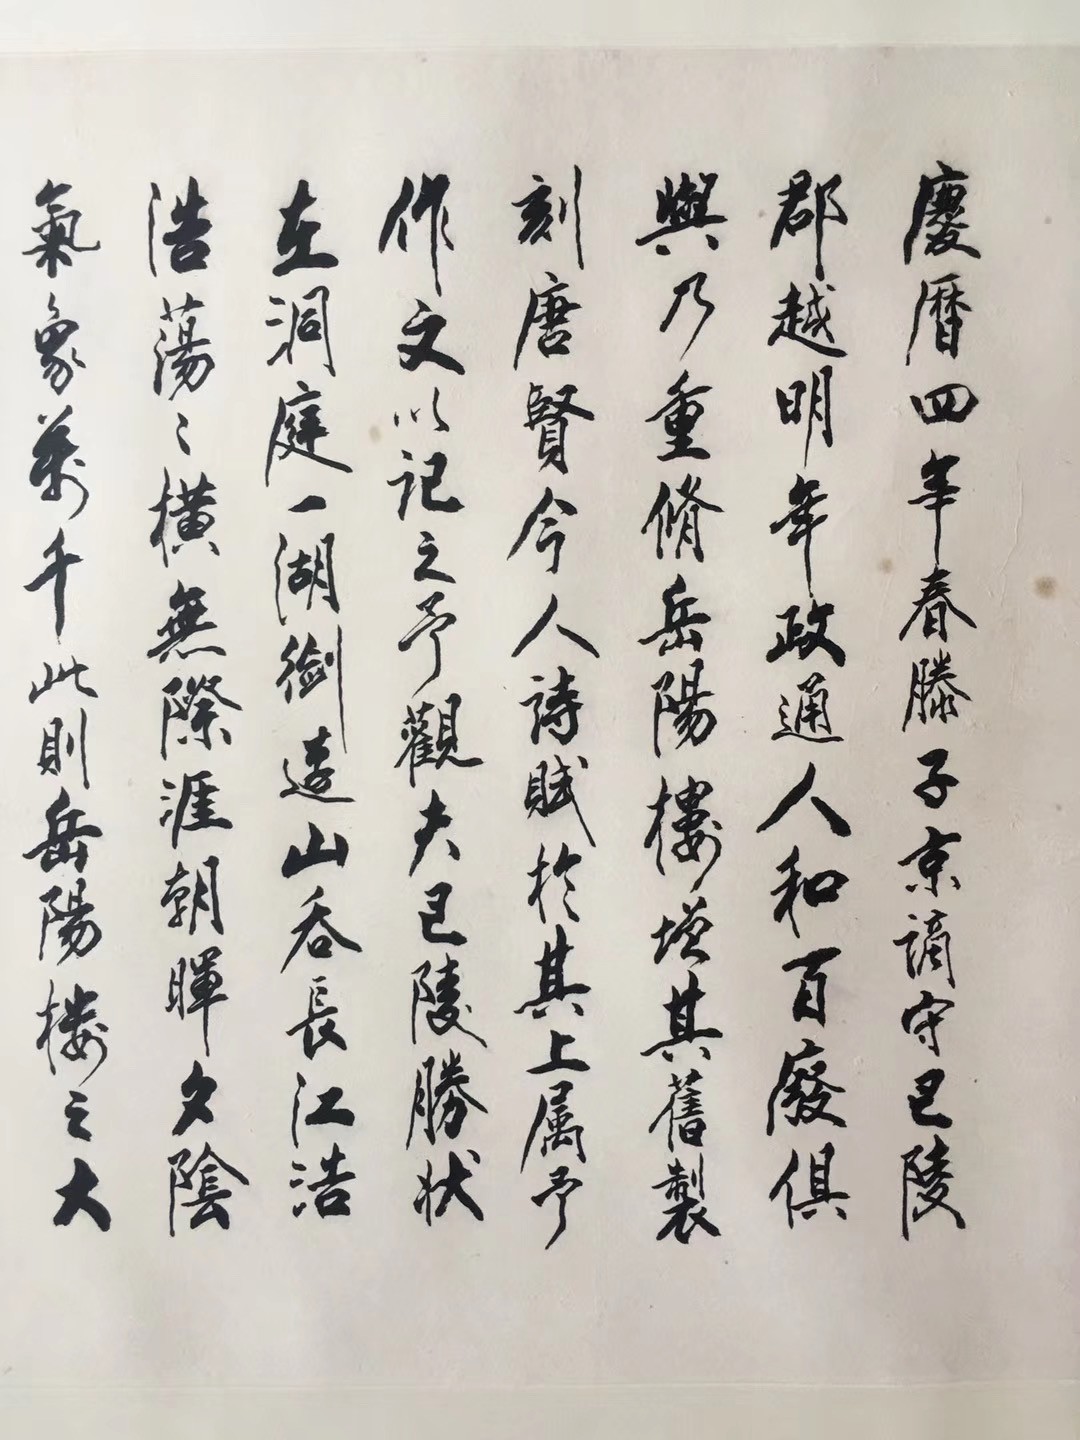 慶曆四年春滕子京謫守巴陵
郡越明年政通人和百廢俱
興乃重脩岳陽樓增其舊製
刻唐賢今人詩賦於其上属予
作文以記之予觀夫巴陵勝状
在洞庭一湖銜遠山吞長江浩
浩蕩〻橫無際涯朝暉夕陰
氣象萬千此則岳陽樓之大